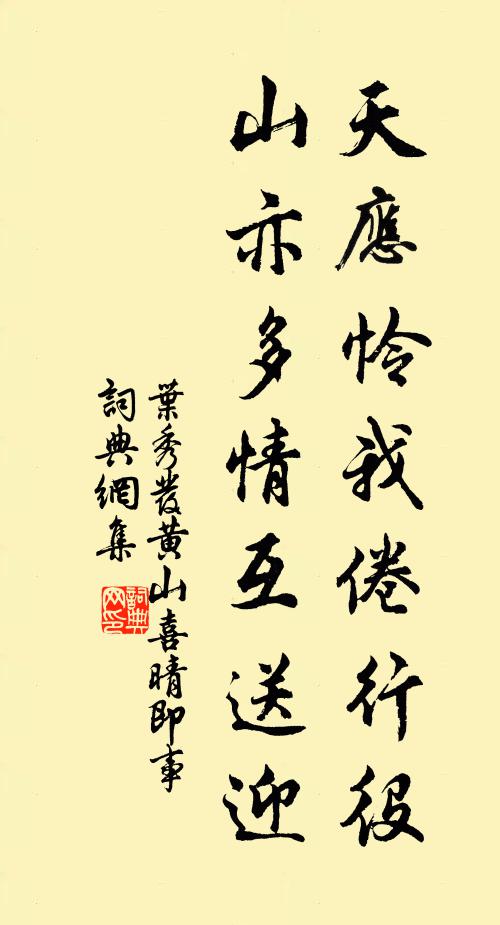 天應怜我倦行役
山亦多情互送迎
葉秀發黄山喜晴即事
詞典網集
詞典网印